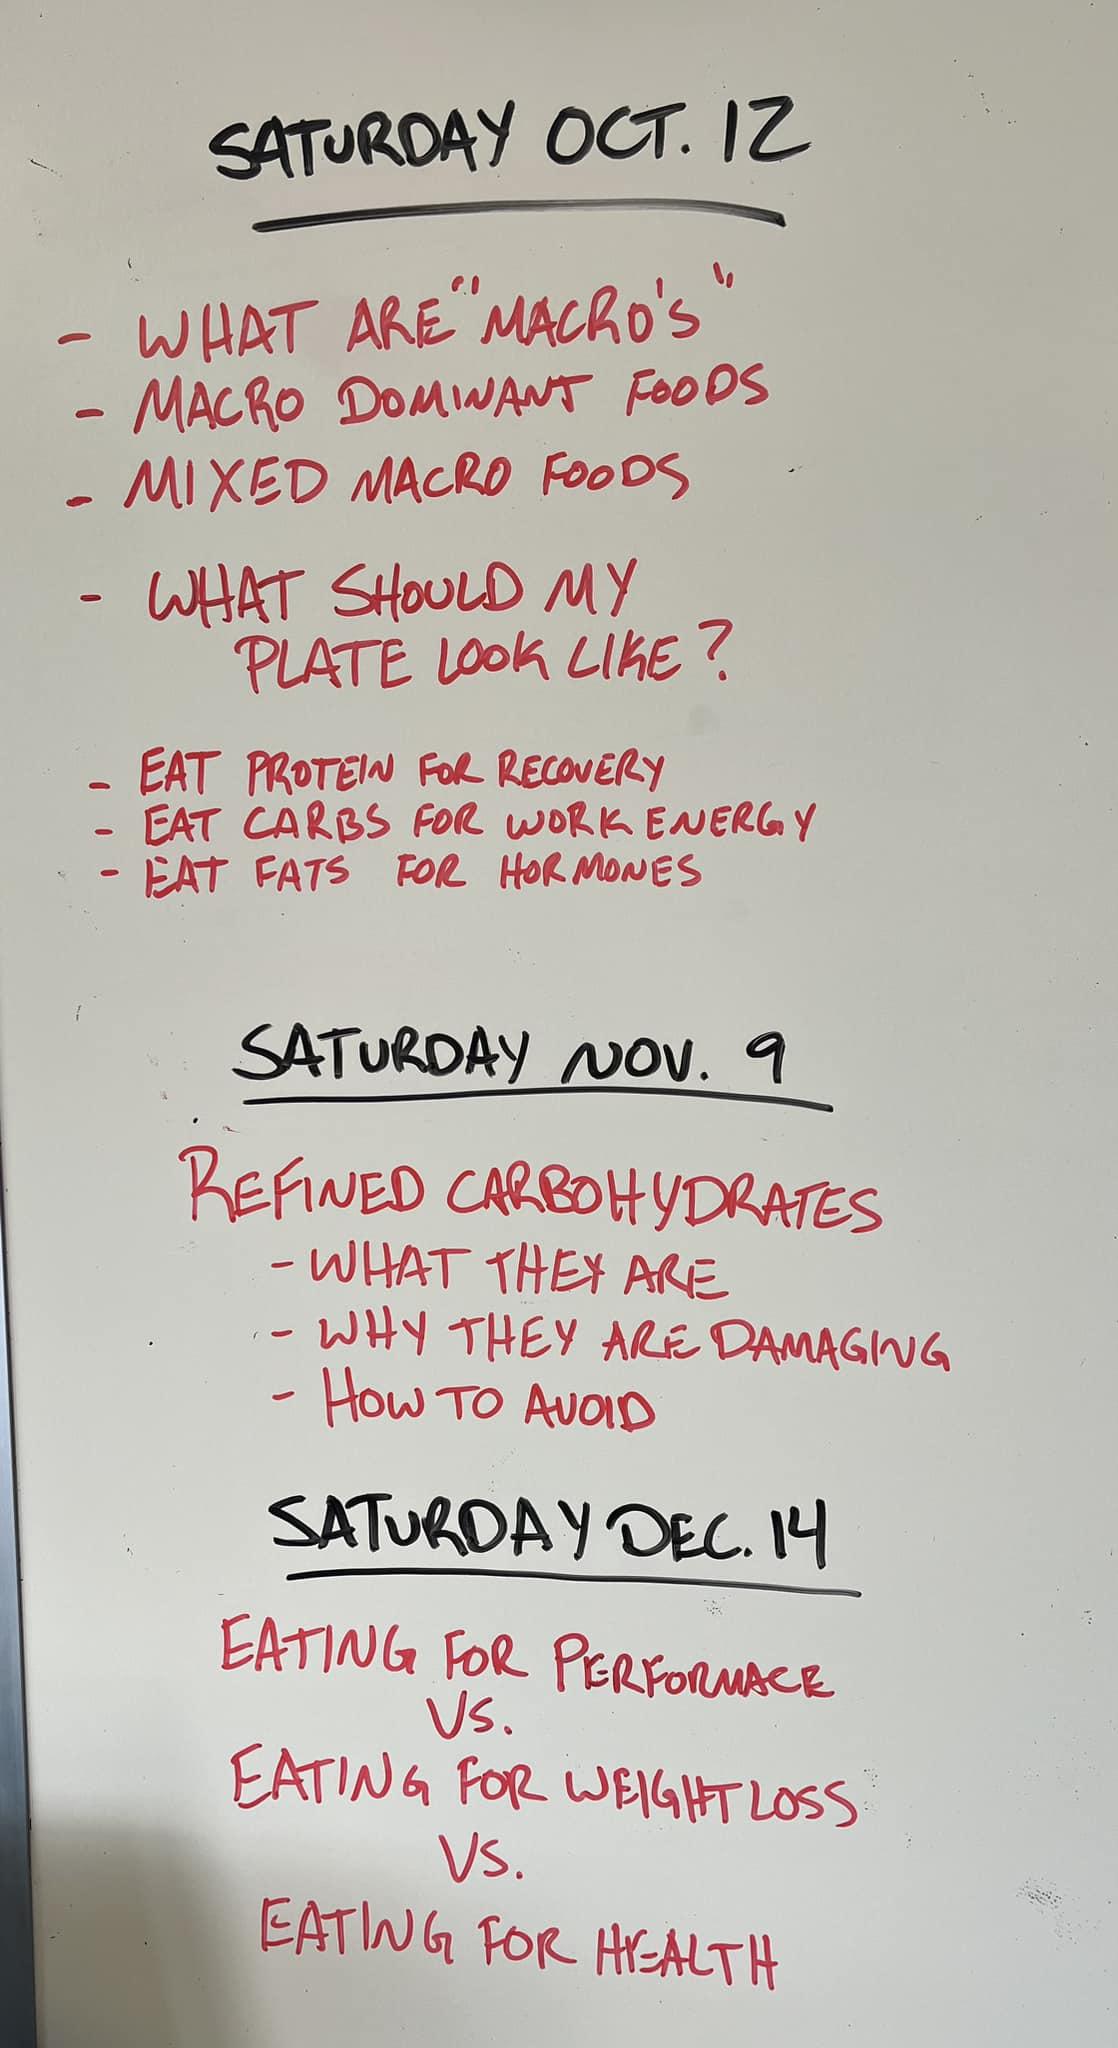 SATURDAY OCT. 12
- WHAT ARE "MACRO'S"
- MACRO DOMINANT FOODS
- MIXED MACRO FOODS
- WHAT SHOULD MY
PLATE LOOK LIKE?
- EAT PROTEIN FOR RECOVERY
- EAT CARBS FOR WORK ENERGY
- EAT FATS FOR HORMONES
SATURDAY NOV. 9
REFINED CARBOHYDRATES
- WHAT THEY ARE
- WHY THEY ARE DAMAGING
- HOW TO AVOID
SATURDAY DEC. 14
EATING FOR PERFORMACE
VS.
EATING FOR WEIGHT LOSS
VS.
EATING FOR HEALTH